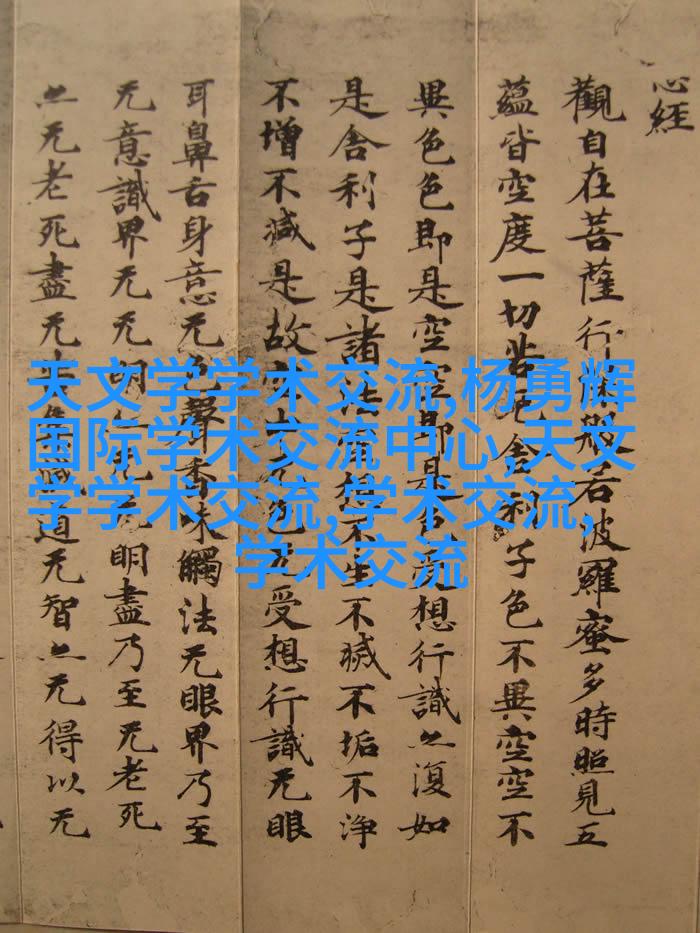 心経
觀自在菩薩行深般若波羅蜜多時照見五
蘊皆空度一切苦厄舍利子色不異空空不
異色色即是空空即是色受想行識亦復如
是舍利子是諸法空相不生不滅不垢不淨
不增不減是故空中无色无受想行識无眼
耳鼻舌身意无色聲香味觸法无眼界乃至
无意識界无无明亦无无明盡乃至无老死
亦无老死盡无苦集滅道无智亦无得以无
天文学学术交流,杨勇辉
国际学术交流中心,天文
学学术交流,学术交流,
学术交流